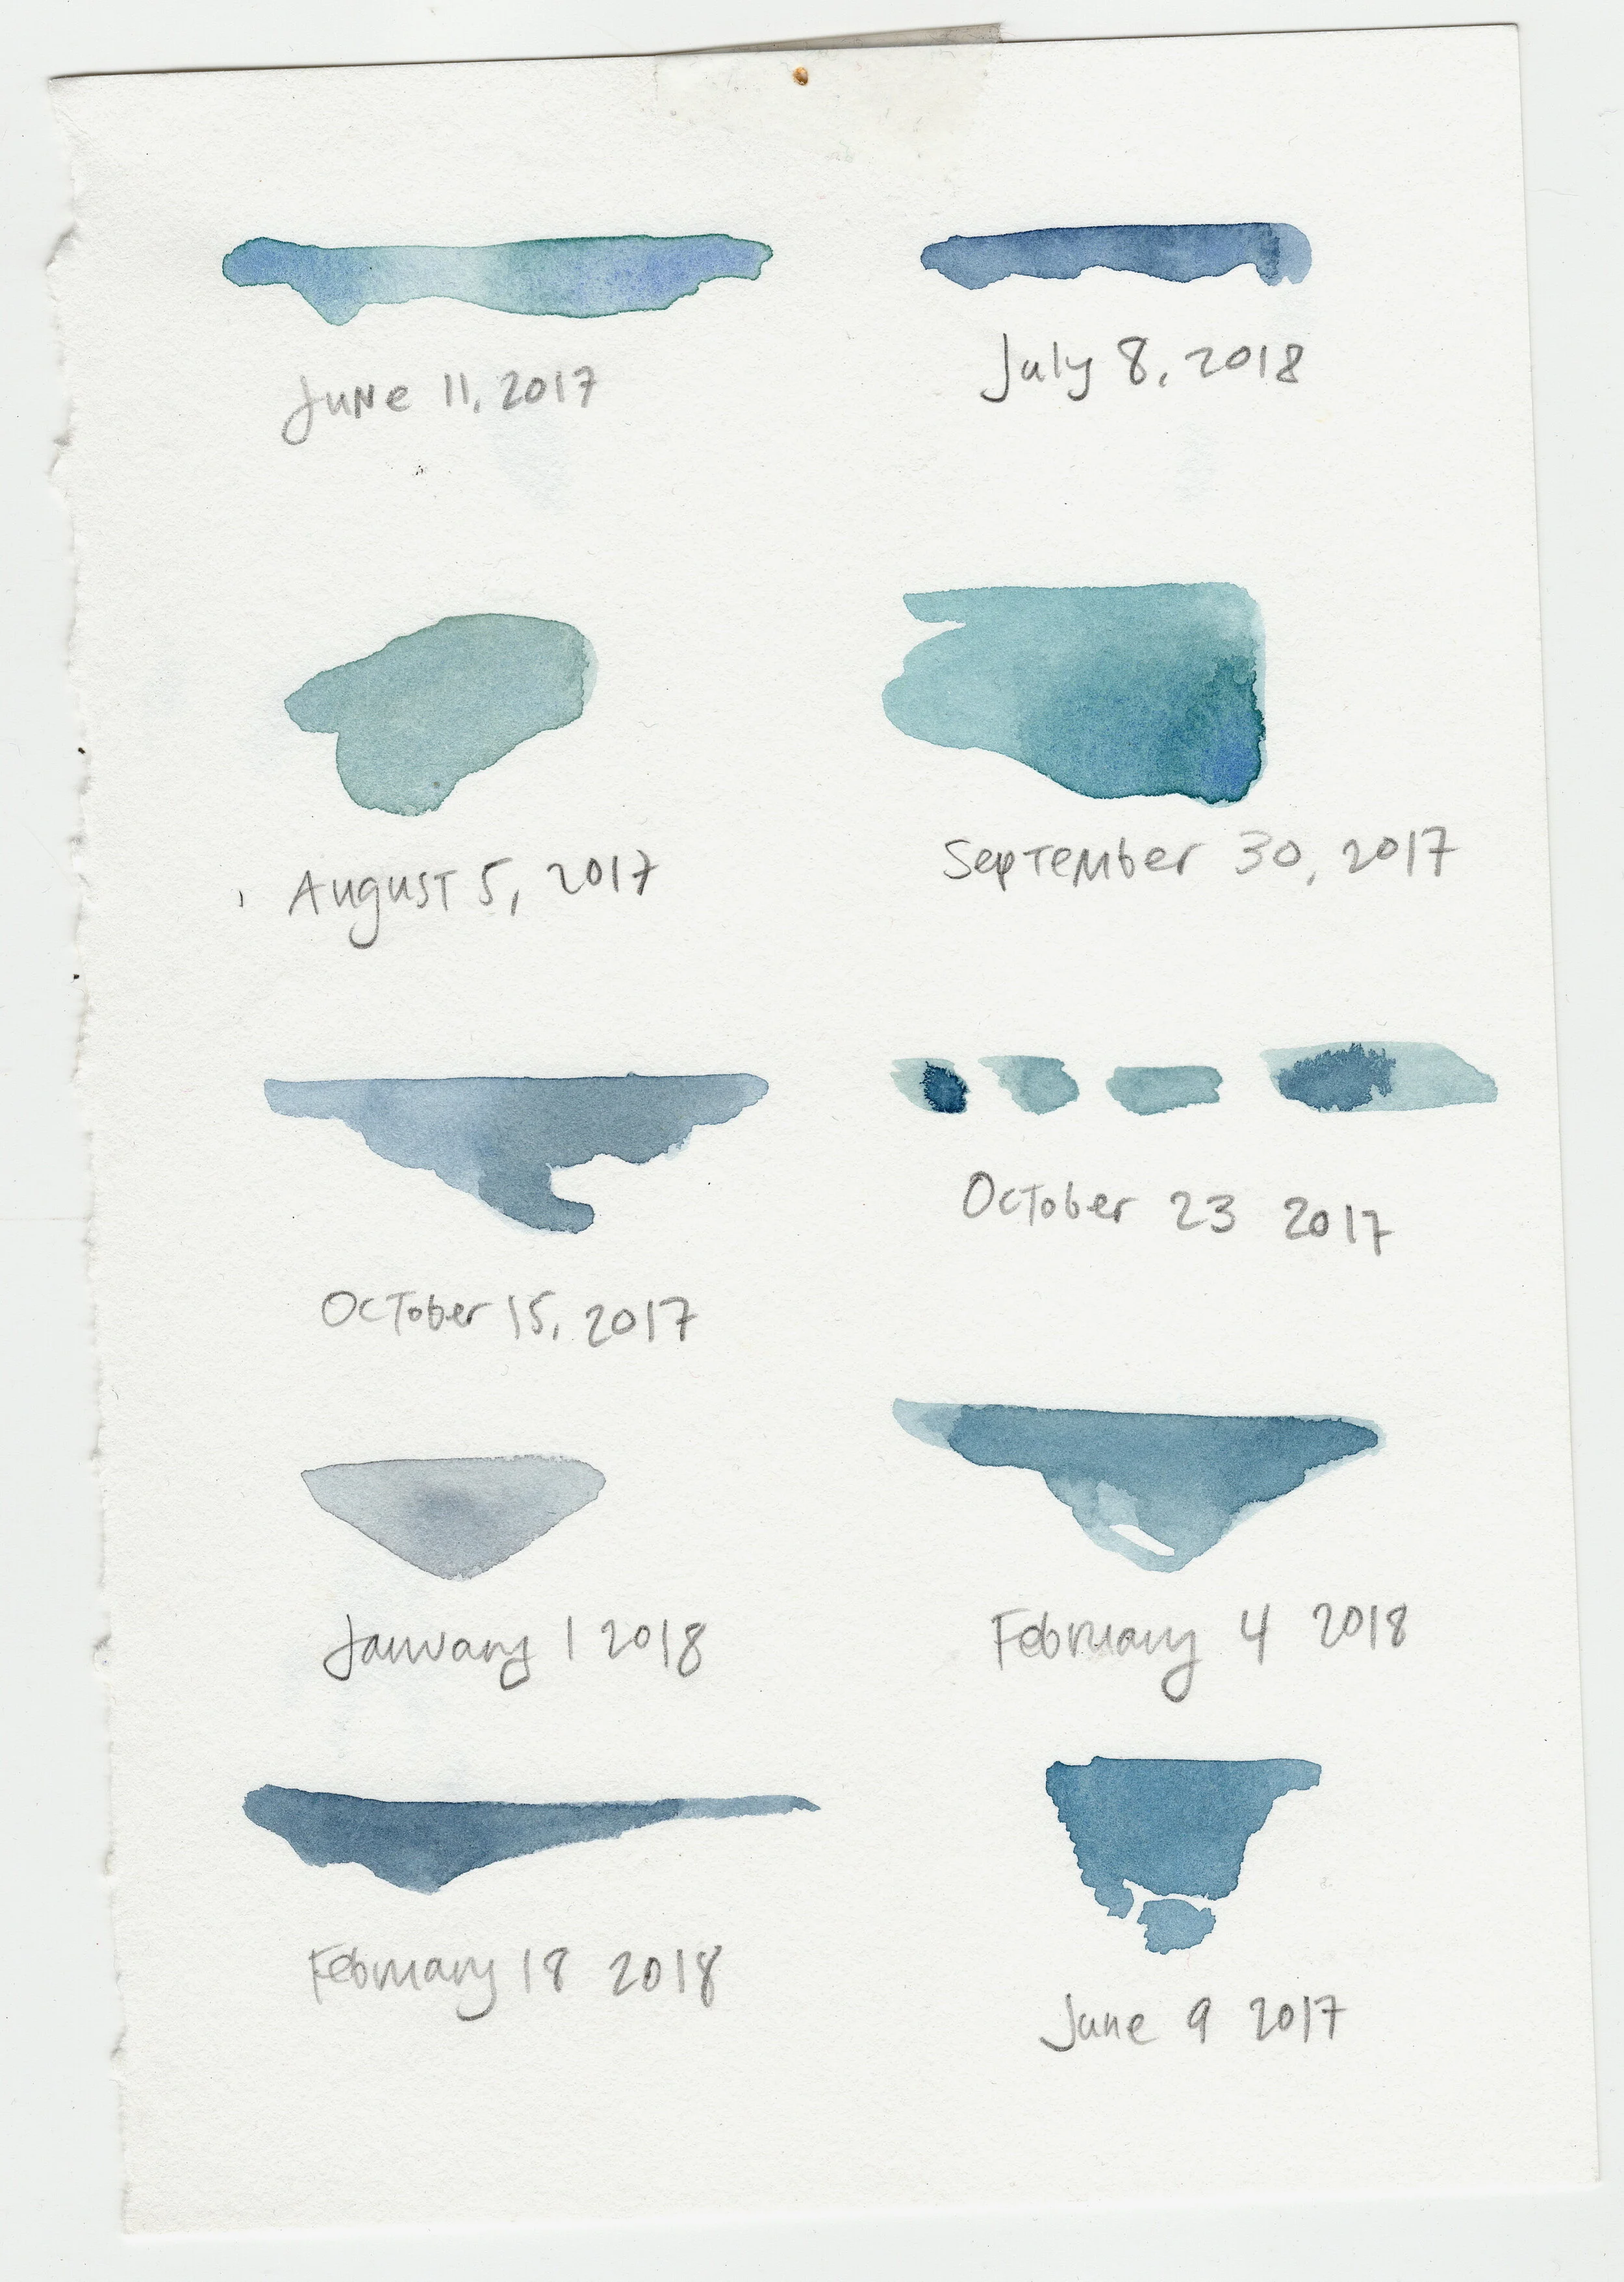 June 11, 2017
July 8, 2018
August 5, 2017
September 30, 2017
October 15, 2017
October 23 2017
January 1 2018
February 4 2018
February 18 2018
June 9 2017